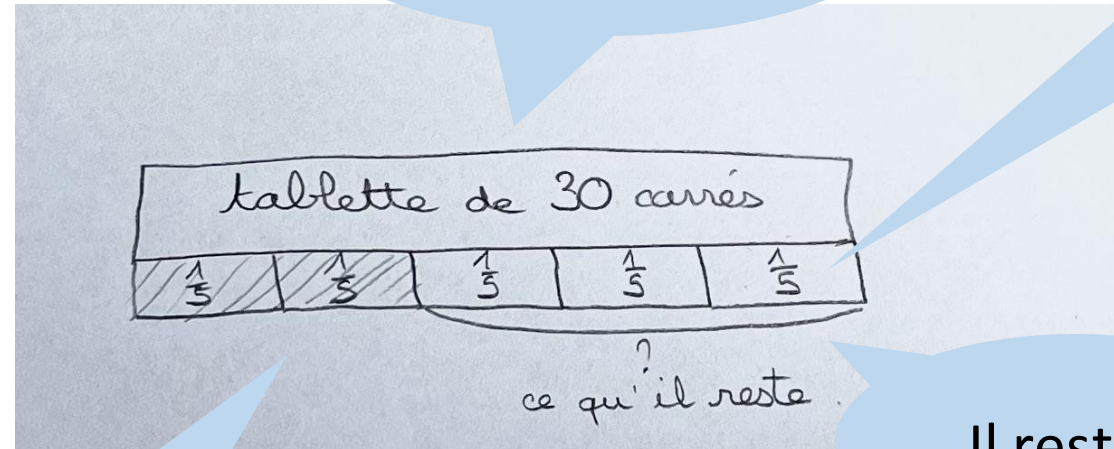 tablette de 30 carrés
1/5 1/5 1/5 1/5 1/5
?
ce qu'il reste.
Il rest